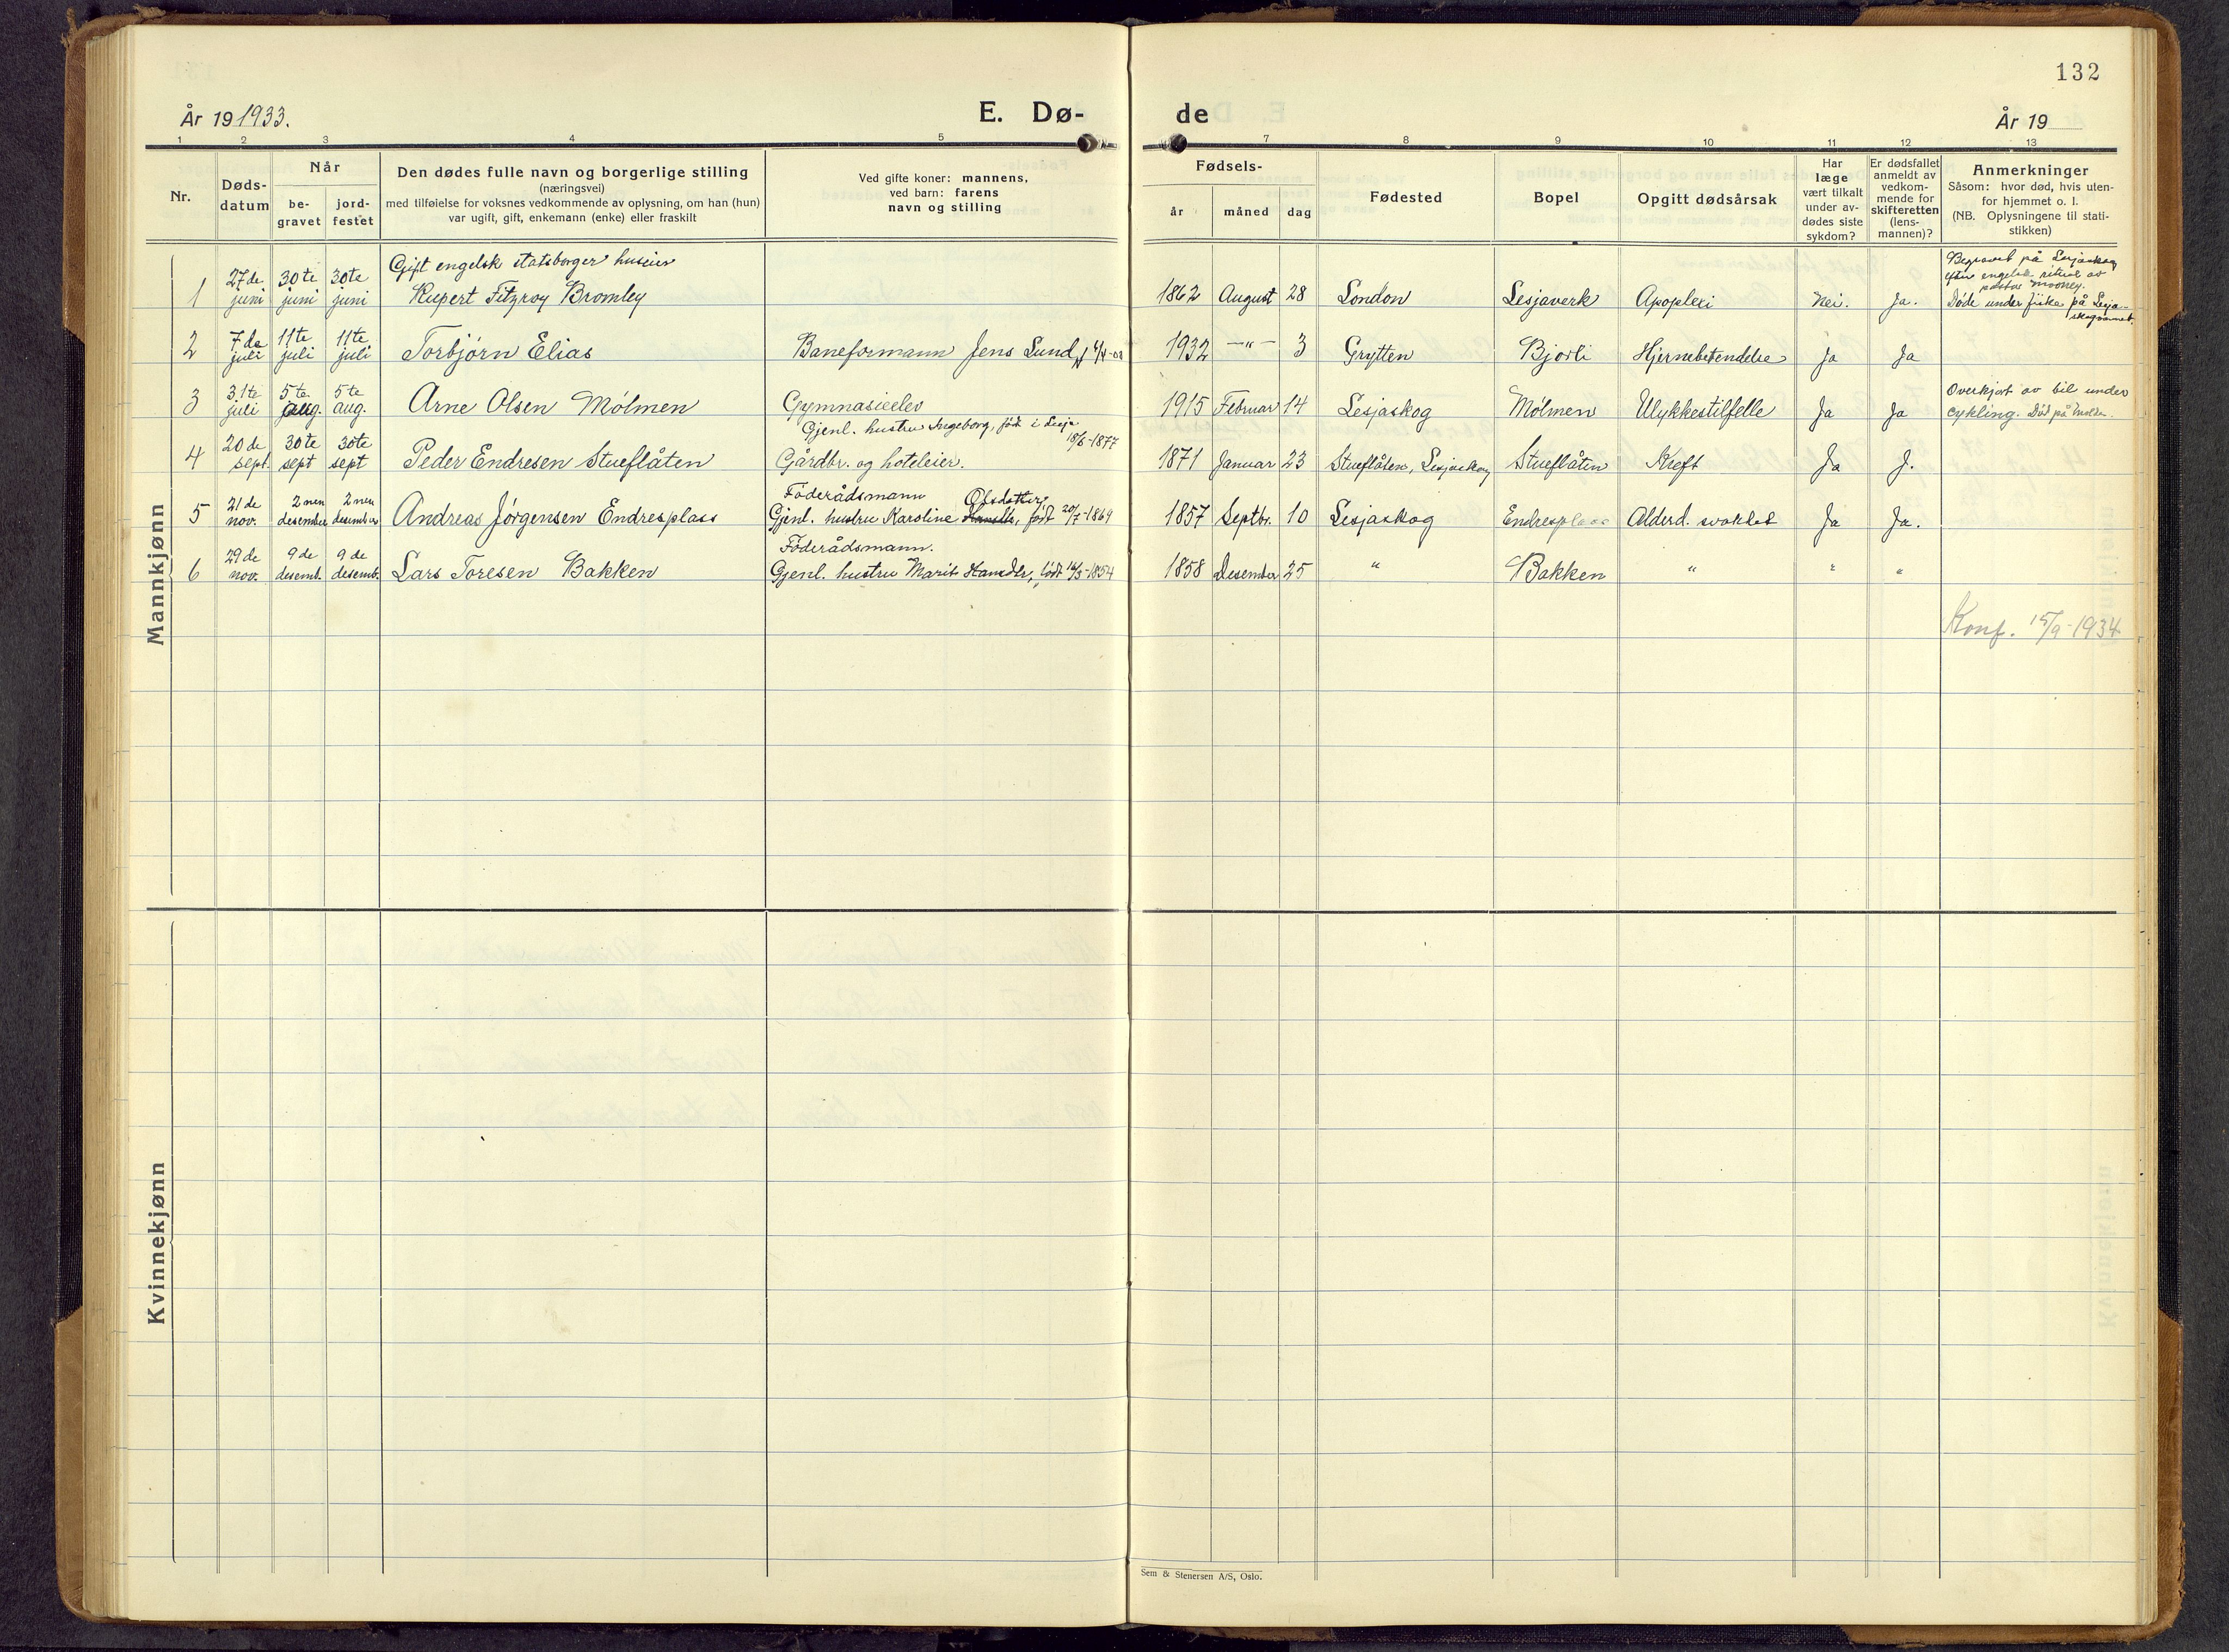 132
År 19 1933.
E. Dø-
de
År 19
1 2 3 4 5 7 8 9 10 11 12 13
Nr.
Døds-
datum
Når
be-
gravet
jord-
festet
Den dødes fulle navn og borgerlige stilling
(næringsvei)
med tilføielse for voksnes vedkommende av oplysning, om han (hun)
var ugift, gift, enkemann (enke) eller fraskilt
Ved gifte koner: mannens,
ved barn: farens
navn og stilling
Fødsels-
år måned dag
Fødested
Bopel
Opgitt dødsårsak
Har
læge
vært tilkalt
under av-
dødes siste
sykdom?
Er dødsfallet
anmeldt av
vedkom-
mende for
skifteretten
(lens-
mannen)?
Anmerkninger
Såsom: hvor død, hvis uten-
for hjemmet o. l.
(NB. Oplysningene til stati-
stikken)
Mannkjønn
1 27de juni 30te juni 30te juni
Gift engelsk statsborger huseier
Rupert Fitzroy Bromley
1862 August 28 London Lesjaverk Apoplexi Nei. Ja.
Begravet på Lesjaskog
efter engelsk ritual av
pastor Mooney.
Døde under fiske på Lesja-
skogvannet.
2 7de juli 11te juli 11te juli Torbjørn Elias Baneformann Jens Lund,
1932 —"— 3 Grytten Bjorli Hjernebetendelse Ja Ja
3 31te juli 5te aug. 5te aug. Arne Olsen Mølmen Gymnasieelev
1915 Februar 14 Lesjaskog Mølmen Ulykkestilfelle Ja Ja
Overkjørt av bil under
cykling. Død på Molde.
Gjenl. hustru Ingeborg, født i Lesja
18/6-1877
4 20de sept. 30te sept 30te sept Peder Endresen Stueflåten Gårdbr. og hoteleier.
1871 Januar 23 Stueflåten, Lesjaskog Stueflåten Kreft Ja J.
5 21de nov. 2nen desember 2nen desember Andreas Jørgensen Endresplass
Føderådsmann Olsdatter,
Gjenl. hustru Karoline født 20/7-1864
1857 Septbr. 10 Lesjaskog Endresplass Alderd. svakhet Ja Ja.
6 29de nov. 9de desemb. 9de desemb. Lars Toresen Bakken
Føderådsmann.
Gjenl. hustru Marit Hansdtr, født 16/3-1854
1858 Desember 25 " Bakken " " "
Konf. 15/9-1934
Kvinnekjønn
Sem & Stenersen A/S, Oslo.